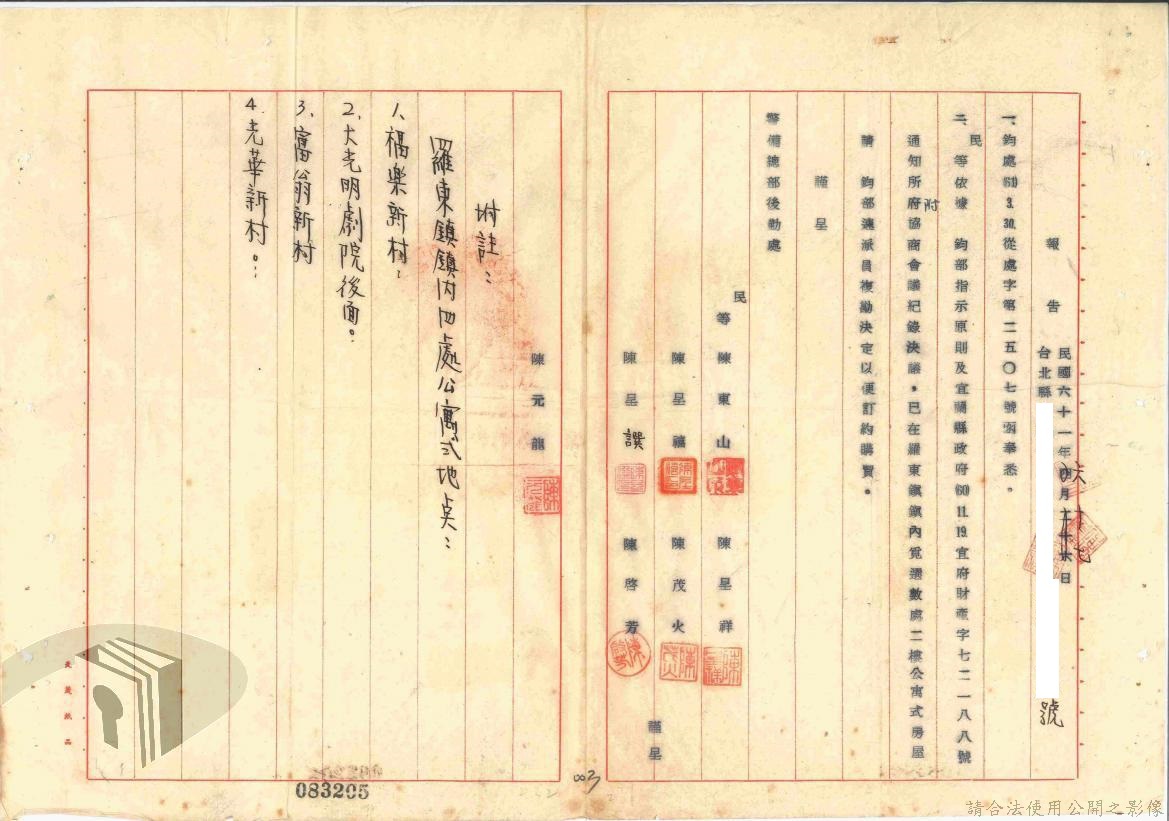 報告
民國六十一年六月十七日
台北縣
號
一、鈞處(61)3.30.從處字第二五〇七號函奉悉。
二、民等依據　鈞部指示原則及宜蘭縣政府(60)11.19.宜府財產字七二一八八號
通知所附府協商會議紀錄決議，已在羅東鎮鎮內覓選數處二樓公寓式房屋
請　鈞部速派員複勘決定以便訂約購買。
謹呈
警備總部後勤處
民等陳東山　陳呈祥
陳呈福　陳茂火
陳呈譔　陳啓芳　謹呈
陳元龍
附註：
羅東鎮鎮內四處公寓式地点：
1、福樂新村：
2、大光明劇院後面。
3、富翁新村
4、光華新村。：
083205
003
請合法使用公開之影像